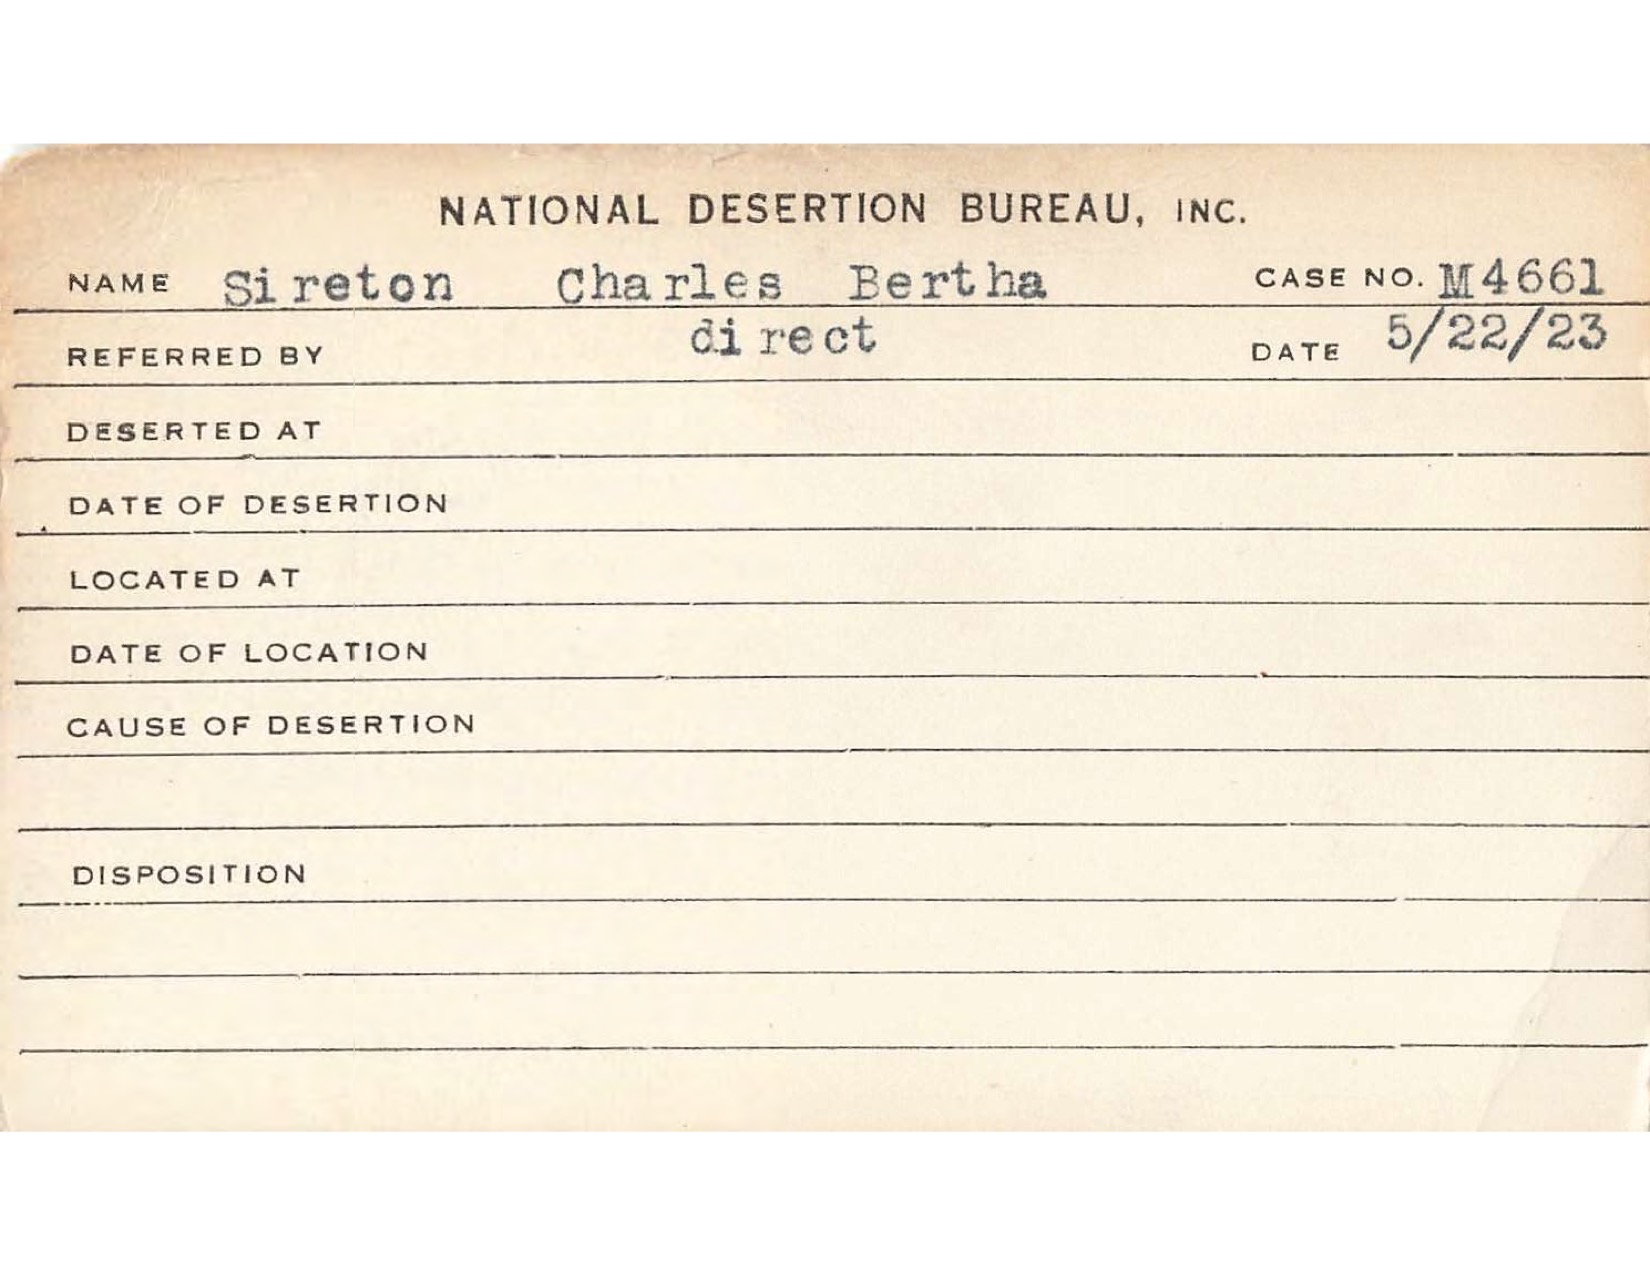 NATIONAL DESERTION BUREAU, INC.
NAME Sireton Charles Bertha CASE NO. M4661
REFERRED BY direct DATE 5/22/23
DESERTED AT
DATE OF DESERTION
LOCATED AT
DATE OF LOCATION
CAUSE OF DESERTION
DISPOSITION